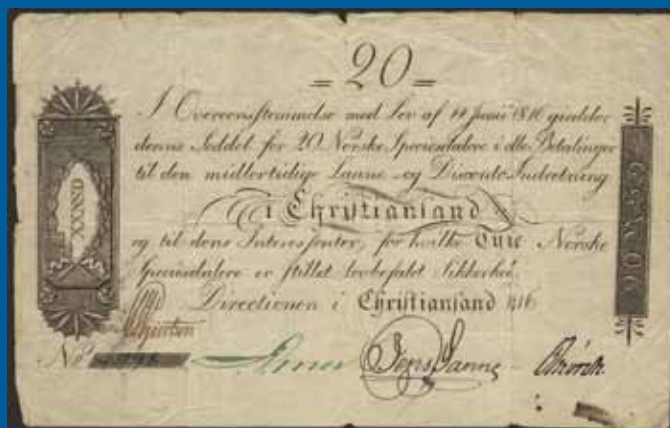 = 20 =
I Overeensstemmelse med Lov af 14 Junii 1816 gielder
denne Seddel for 20 Norske Speciesdalere i alle Betalinger
til den midlertidige Laane- og Disconto-Indretning
i Christiansand
og til dens Interessenter, for hvilke Tyve Norske
Speciesdalere er stillet lovbefalet Sikkerhed.
Directionen i Christiansand 1816
No
XXNSD